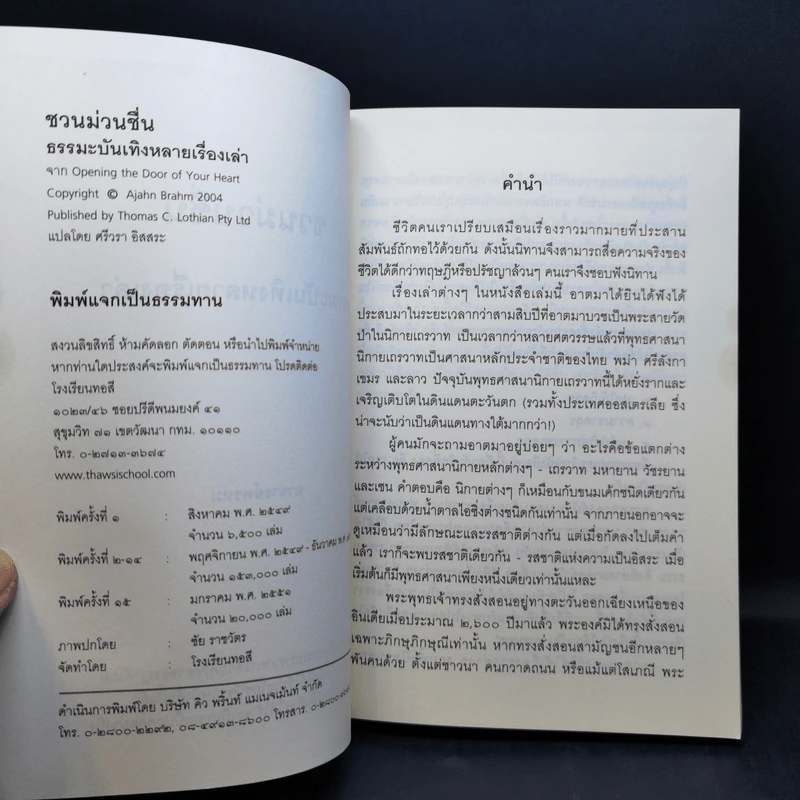 ชวนม่วนชื่น
ธรรมะบันเทิงหลายเรื่องเล่า
จาก Opening the Door of Your Heart
Copyright © Ajahn Brahm 2004
Published by Thomas C. Lothian Pty Ltd
แปลโดย ศรีวรา อิสสระ
พิมพ์แจกเป็นธรรมทาน
สงวนลิขสิทธิ์ ห้ามคัดลอก ตัดตอน หรือนำไปพิมพ์จำหน่าย
หากท่านใดประสงค์จะพิมพ์แจกเป็นธรรมทาน โปรดติดต่อ
โรงเรียนทอสี
๑๐๒๓/๔๖ ซอยปรีดีพนมยงค์ ๔๑
สุขุมวิท ๗๑ เขตวัฒนา กทม. ๑๐๑๑๐
โทร. ๐-๒๗๑๓-๓๖๗๔
www.thawsischool.com
พิมพ์ครั้งที่ ๑ : สิงหาคม พ.ศ. ๒๕๔๙
จำนวน ๖,๕๐๐ เล่ม
พิมพ์ครั้งที่ ๒-๑๔ : พฤศจิกายน พ.ศ. ๒๕๔๙ - ธันวาคม พ.ศ.
จำนวน ๑๕๓,๐๐๐ เล่ม
พิมพ์ครั้งที่ ๑๕ : มกราคม พ.ศ. ๒๕๕๑
จำนวน ๒๐,๐๐๐ เล่ม
ภาพปกโดย : ชัย ราชวัตร
จัดทำโดย : โรงเรียนทอสี
ดำเนินการพิมพ์โดย บริษัท คิว พริ้นท์ แมเนจเม้นท์ จำกัด
โทร. ๐-๒๘๐๐-๒๒๙๒, ๐๘-๔๙๑๓-๘๖๐๐ โทรสาร.
คำนำ
ชีวิตคนเราเปรียบเสมือนเรื่องราวมากมายที่ประสาน
สัมพันธ์ถักทอไว้ด้วยกัน ดังนั้นนิทานจึงสามารถสื่อความจริงของ
ชีวิตได้ดีกว่าทฤษฎีหรือปรัชญาล้วนๆ คนเราจึงชอบฟังนิทาน
เรื่องเล่าต่างๆ ในหนังสือเล่มนี้ อาตมาได้ยินได้ฟังได้
ประสบมาในระยะเวลากว่าสามสิบปีที่อาตมาบวชเป็นพระสายวัด
ป่าในนิกายเถรวาท เป็นเวลากว่าหลายศตวรรษแล้วที่พุทธศาสนา
นิกายเถรวาทเป็นศาสนาหลักประจำชาติของไทย พม่า ศรีลังกา
เขมร และลาว ปัจจุบันพุทธศาสนานิกายเถรวาทนี้ได้หยั่งรากและ
เจริญเติบโตในดินแดนตะวันตก (รวมทั้งประเทศออสเตรเลีย ซึ่ง
น่าจะนับว่าเป็นดินแดนทางใต้มากกว่า!)
ผู้คนมักจะถามอาตมาอยู่บ่อยๆ ว่า อะไรคือข้อแตกต่าง
ระหว่างพุทธศาสนานิกายหลักต่างๆ - เถรวาท มหายาน วัชรยาน
และเซน คำตอบคือ นิกายต่างๆ ก็เหมือนกับขนมเค้กชนิดเดียวกัน
แต่เคลือบด้วยน้ำตาลไอซิ่งต่างชนิดกันเท่านั้น จากภายนอกอาจจะ
ดูเหมือนว่ามีลักษณะและรสชาติต่างกัน แต่เมื่อกัดลงไปเต็มคำ
แล้ว เราก็จะพบรสชาติเดียวกัน - รสชาติแห่งความเป็นอิสระ เมื่อ
เริ่มต้นก็มีพุทธศาสนาเพียงหนึ่งเดียวเท่านั้นแหละ
พระพุทธเจ้าทรงสั่งสอนอยู่ทางตะวันออกเฉียงเหนือของ
อินเดียเมื่อประมาณ ๒,๖๐๐ ปีมาแล้ว พระองค์มิได้ทรงสั่งสอน
เฉพาะภิกษุภิกษุณีเท่านั้น หากทรงสั่งสอนสามัญชนอีกหลายๆ
พันคนด้วย ตั้งแต่ชาวนา คนกวาดถนน หรือแม้แต่โสเภณี พระ